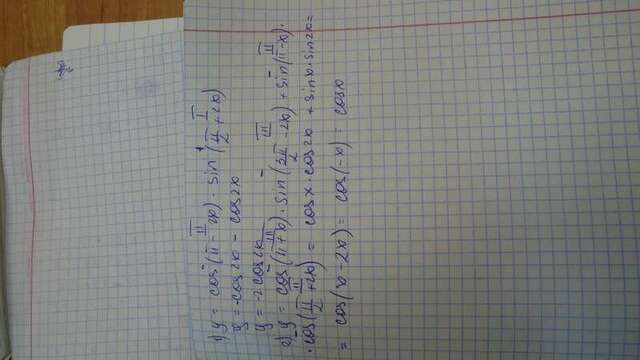 1) y = cos(π - 2x) · sin(π/2 + 2x)
y = -cos2x - cos2x
y = -2cos2x
2) y = cos(π + x) · sin(3π/2 - 2x) + sin(π - x) ·
· cos(π/2 + 2x) = cosx · cos2x + sinx · sin2x =
= cos(x - 2x) = cos(-x) = cosx